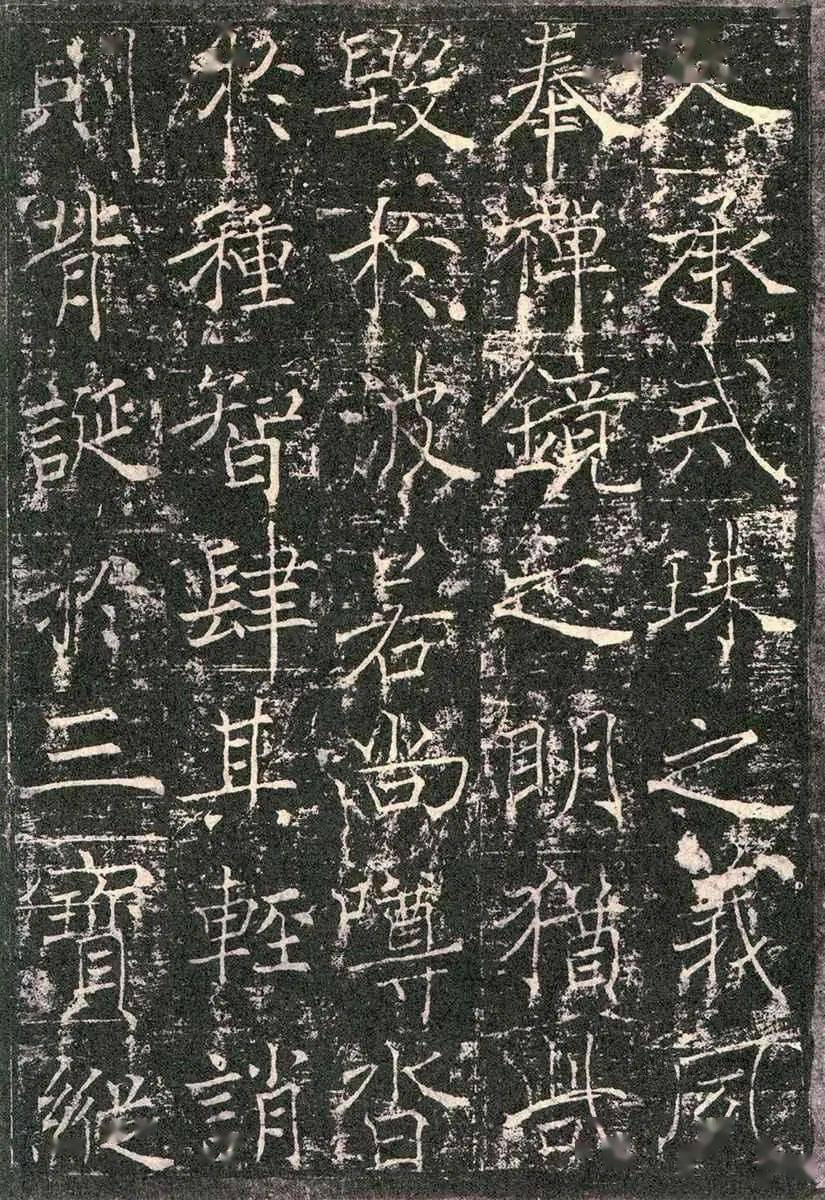 人承戒珠之義風
奉禪鏡之明猶呰
毀於波若尚噂沓
於種智肆其輕誚
則背誕於三寶縱